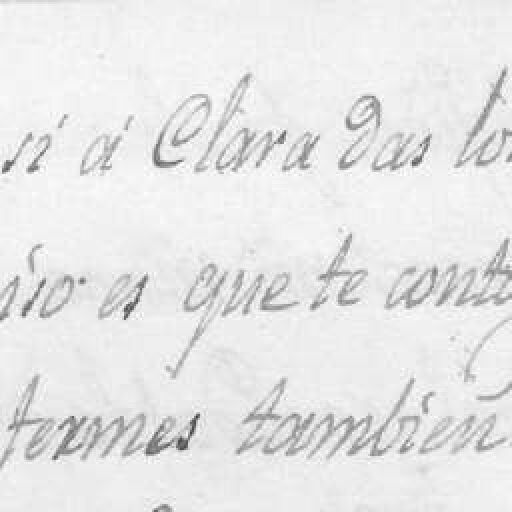 si á Clara das
es que te
fermes tambien